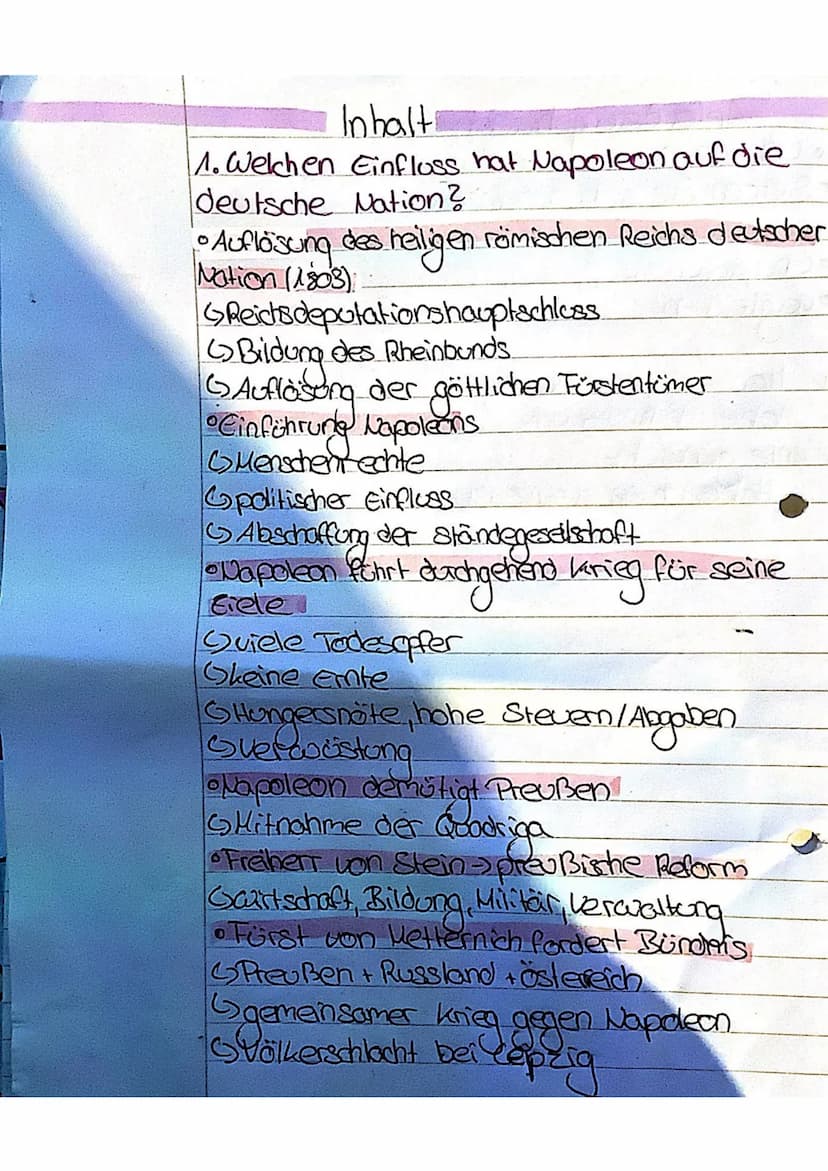 Inhalt
1. Welchen Einfluss hat Napoleon auf die
deutsche Nation?
• Auflösung des heiligen römischen Reichs deutscher
Nation (1803)
↳ Reichsdeputationshauptschluss
↳ Bildung des Rheinbunds
↳ Auflösung der göttlichen Fürstentümer
• Einführung Napoleons
↳ Menschenrechte
↳ politischer Einfluss
↳ Abschaffung der Ständegesellschaft
• Napoleon führt durchgehend Krieg für seine
Ziele
↳ viele Todesopfer
↳ keine Ernte
↳ Hungersnöte, hohe Steuern/Abgaben
↳ Verwüstung
• Napoleon demütigt Preußen
↳ Mitnahme der Quadriga
• Freiherr von Stein → preußische Reform
↳ Wirtschaft, Bildung, Militär, Verwaltung
• Fürst von Metternich fordert Bündnis
↳ Preußen + Russland + Östereich
↳ gemeinsamer Krieg gegen Napoleon
↳ Völkerschlacht bei Leipzig